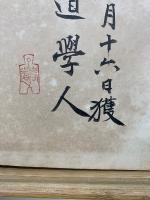 月十六日獲
道學人